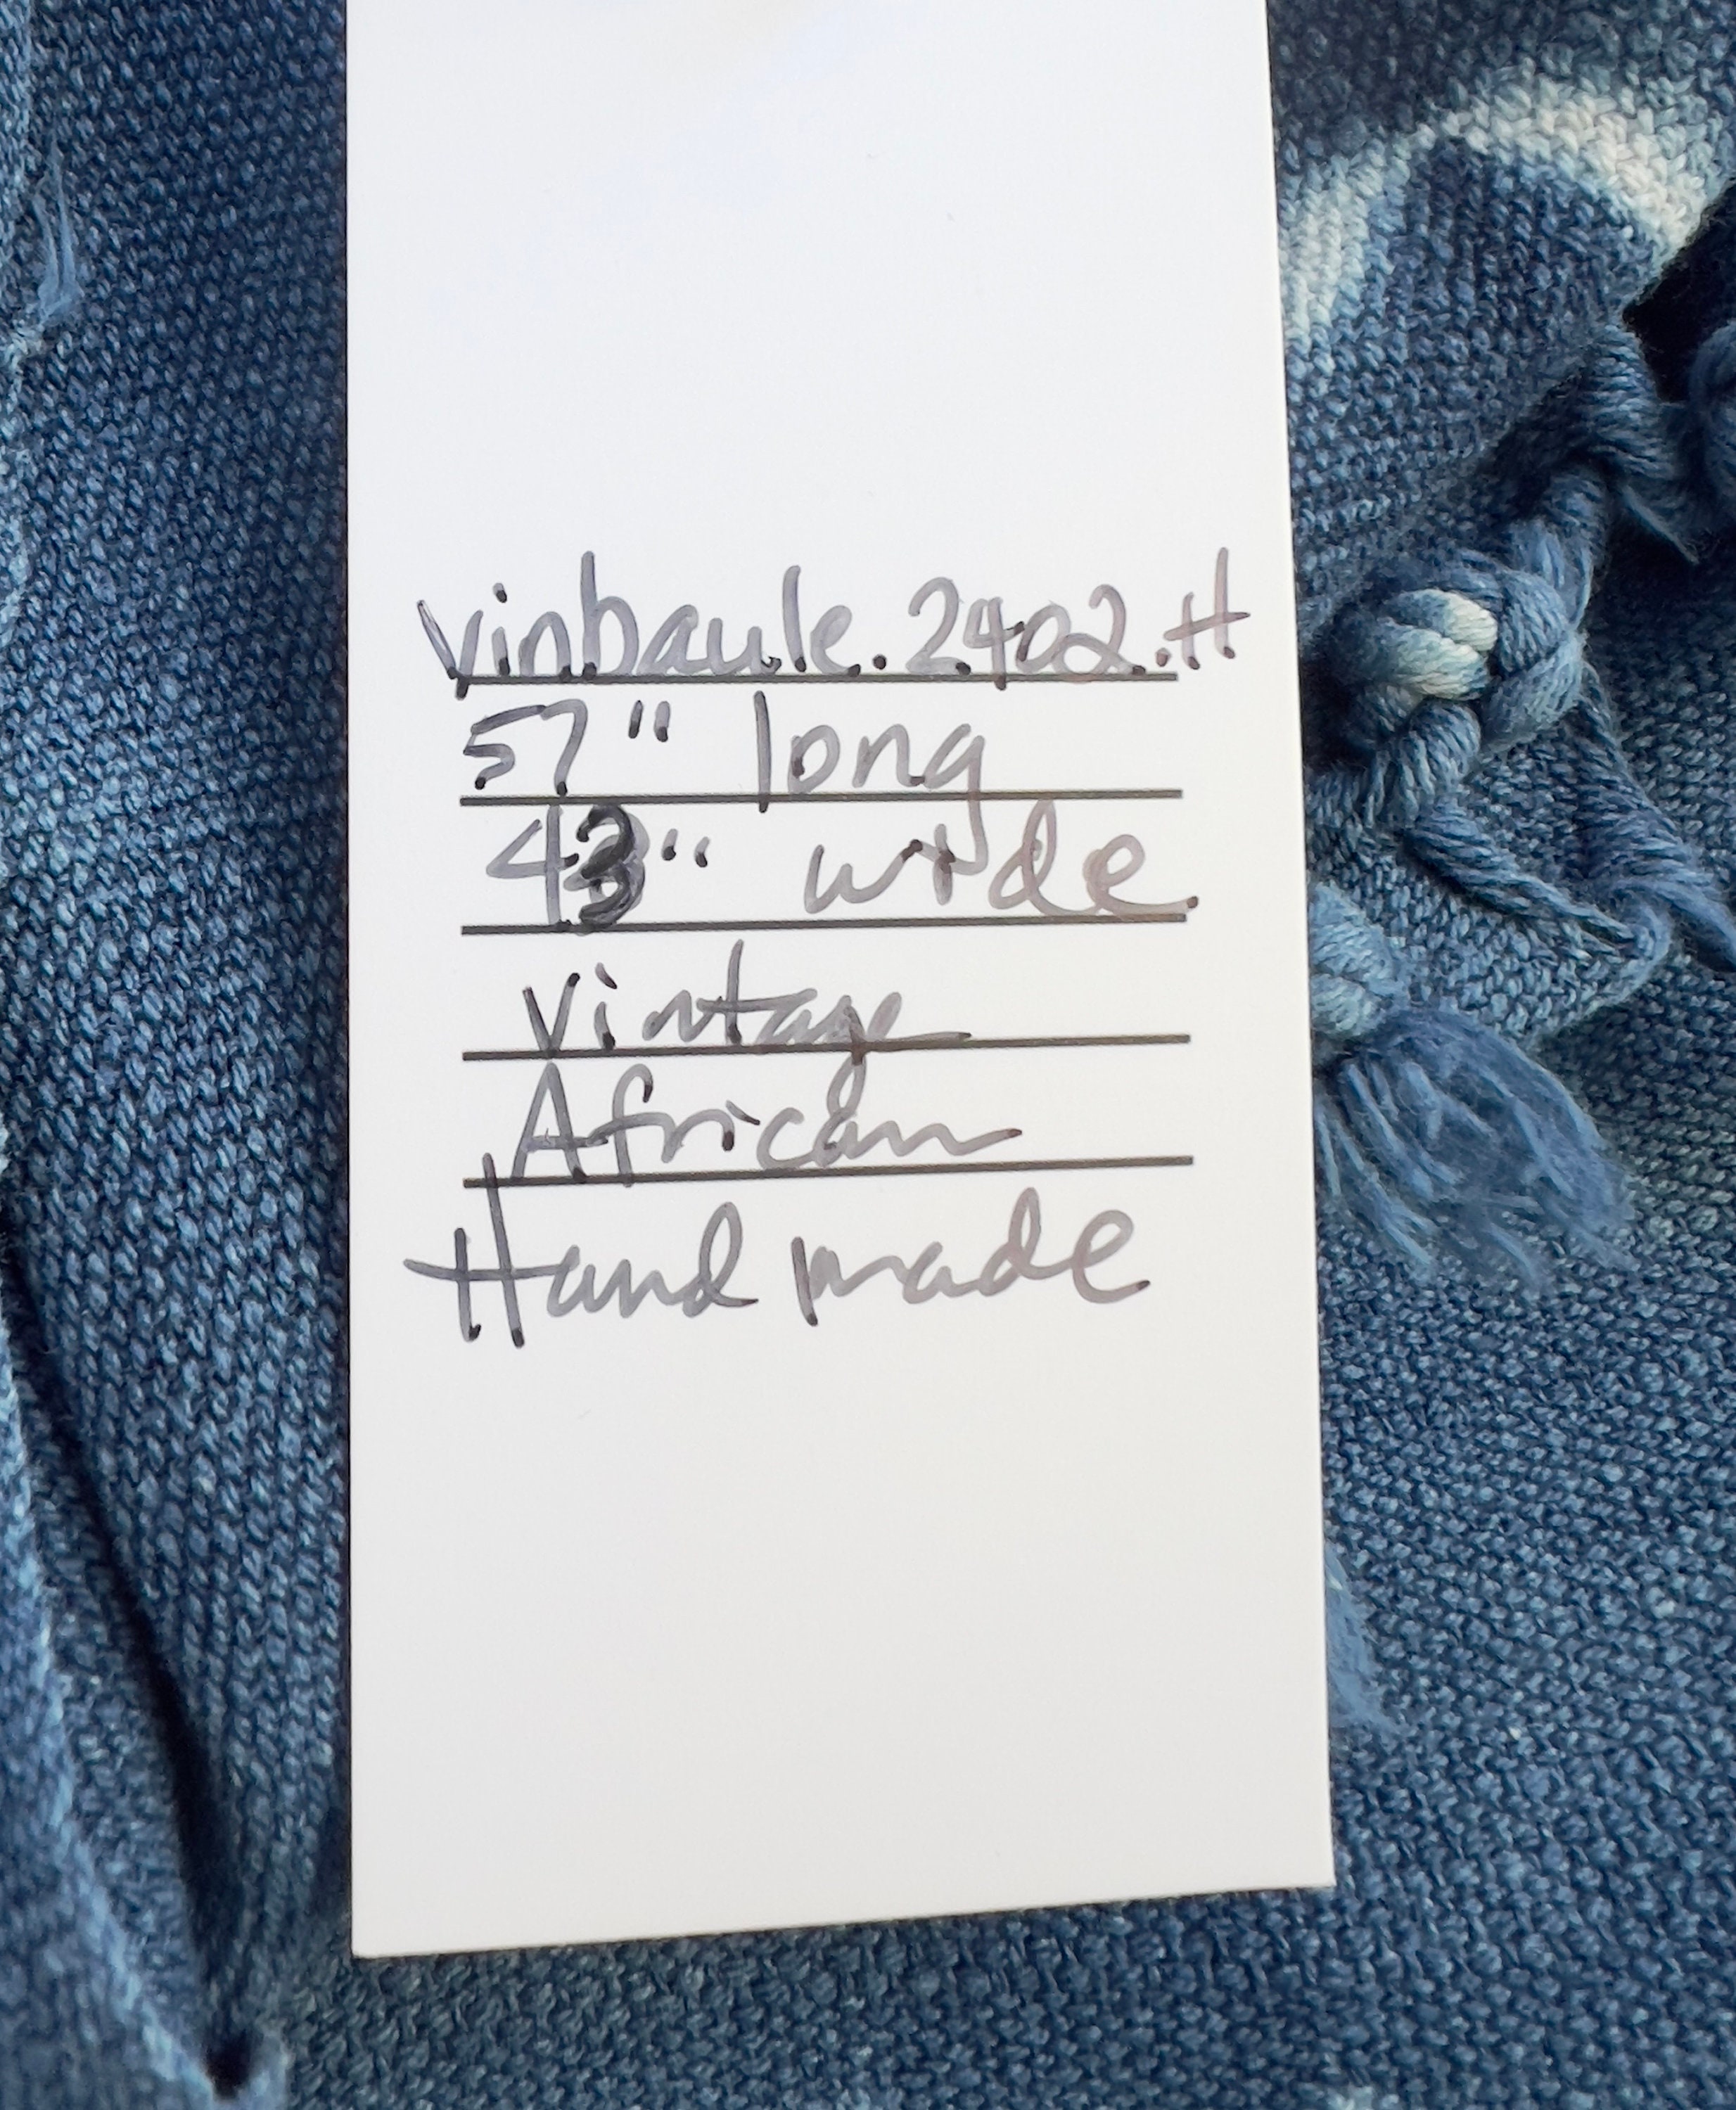 vinbaule.2402.H
57" long
43" wide
Vintage
African
Hand made